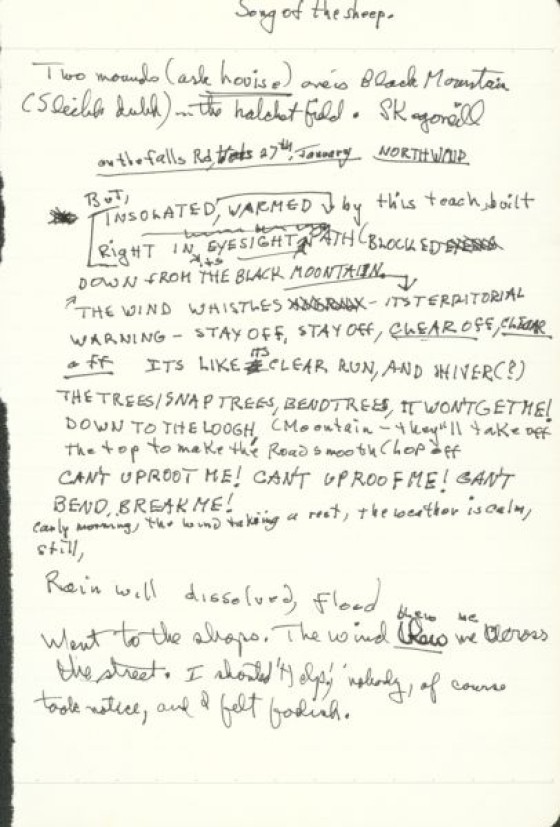 Song of the sheep.
Two mounds (ask house) Black Mountain
(Sleibh dubh) in the hatchet field.
on the falls Rd, 27th, January NORTHWIND
But,
INSOLATED, WARMED by this teach, built
Right IN EYESIGHT, PATH (BLOCKED
ITS
DOWN FROM THE BLACK MOUNTAIN.
THE WIND WHISTLES - ITS TERRITORIAL
WARNING - STAY OFF, STAY OFF, CLEAR OFF, CLEAR
off ITS LIKE ITS CLEAR RUN, AND SHIVER(?)
THE TREES/SNAP TREES, BEND TREES, IT WON'T GET ME!
DOWN TO THE LOUGH, (Mountain - they'll take off
the top to make the Road smooth Chop off
CANT UPROOT ME! CANT UPROOF ME! CANT
BEND, BREAK ME!
early morning, the wind taking a rest, the weather is calm,
still,
Rain will dissolved, flood
blew me
Went to the shops. The wind blew me across
the street. I shouted 'Help,' nobody, of course
took notice, and I felt foolish.